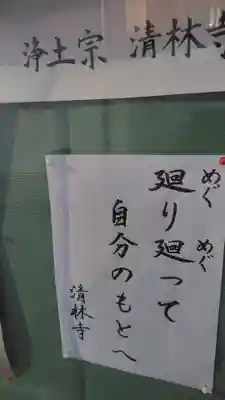 浄土宗 清林寺
めぐ めぐ
廻り廻って
自分のもとへ
清林寺